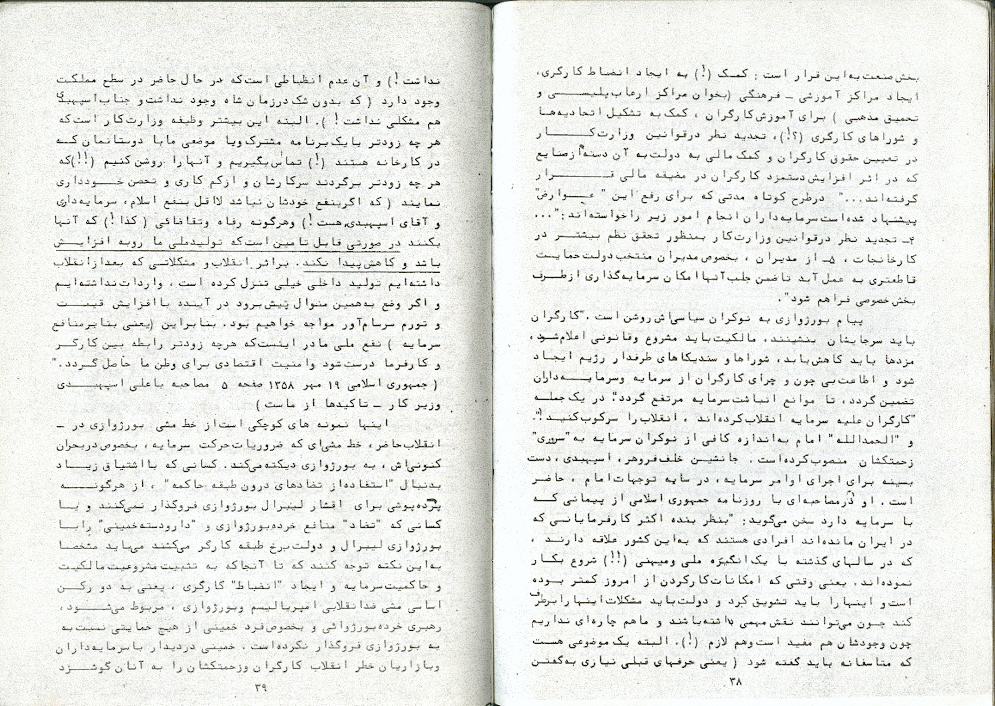 بخش صنعت به‌این قرار است : کمک (!) به ایجاد انضباط کارگری،
ایجاد مراکز آموزشی ـ فرهنگی (بخوان مراکز ارعاب پلیسی و
تحمیق مذهبی ) برای آموزش کارگران ، کمک به تشکیل اتحادیه‌ها
و شوراهای کارگری (؟!)، تجدید نظر درقوانین وزارت کار
در تعیین حقوق کارگران و کمک مالی به دولت به آن دسته از صنایع
که در اثر افزایش دستمزد کارگران در مضیقه مالی قرار
گرفته‌اند..." درطرح کوتاه مدتی که برای رفع این "عوارض"
پیشنهاد شده است سرمایه‌داران انجام امور زیر را خواسته‌اند :"...
۴ـ تجدید نظر درقوانین وزارت کار بمنظور تحقق نظم بیشتر در
کارخانجات ، ۵ـ از مدیران ، بخصوص مدیران منتخب دولت حمایت
قاطعتری به عمل آید تا ضمن جلب آنها امکان سرمایه گذاری ازطرف
بخش خصوصی فراهم شود".
پیام بورژوازی به نوکران سیاسی‌اش روشن است . "کارگران
باید سرجایشان بنشینند، مالکیت باید مشروع وقانونی اعلام شود،
مزدها باید کاهش یابد، شوراها و سندیکاهای طرفدار رژیم ایجاد
شود و اطاعت بی چون و چرای کارگران از سرمایه وسرمایه‌داران
تضمین گردد، تا موانع انباشت سرمایه مرتفع گردد". در یک جمله
"کارگران علیه سرمایه انقلاب کرده‌اند ، انقلاب را سرکوب کنید!".
و "الحمدالله" امام به‌اندازه کافی از نوکران سرمایه به "سروری"
زحمتکشان منصوب کرده است . جانشین خلف فروهر، اسپهبدی، دست
بسینه برای اجرای اوامر سرمایه، در سایه توجهات امام ، حاضر
است . او در مصاحبه‌ای با روزنامه جمهوری اسلامی از پیمانی که
با سرمایه دارد سخن می‌گوید: "بنظر بنده اکثر کارفرمایانی که
در ایران مانده‌اند افرادی هستند که به‌این کشور علاقه دارند ،
که در سالهای گذشته با یک انگیزه ملی ومیهنی (!!) شروع بکار
نموده‌اند. یعنی وقتی که امکانات کارکردن از امروز کمتر بوده
است و اینها را باید تشویق کرد و دولت باید مشکلات اینها را برطرف
کند چون می‌توانند نقش مهمی داشته‌باشند و ماهم چاره‌ای نداریم
چون وجودشان هم مفید است وهم لازم (!). البته یک موضوعی هست
که متاسفانه باید گفته شود ( یعنی حرفهای قبلی نیازی به‌گفتن
۳۸
نداشت!) و آن عدم انظباطی است‌که در حال حاضر در سطح مملکت
وجود دارد ( که بدون شک درزمان شاه وجود نداشت و جناب اسپهبدی
هم مشکلی نداشت! ). البته این بیشتر وظیفه وزارت کار است که
هر چه زودتر با یک برنامه مشترک ویا موضعی مابا دوستانمان که
در کارخانه هستند (!) تماس بگیریم و آنها را روشن کنیم (!!) که
هر چه زودتر برگردند سرکارشان و ازکم کاری و تحصن خودداری
نمایند ( که اگر بنفع خودشان نباشد لااقل بنفع اسلام، سرمایه‌داری
و آقای اسپهبدی هست!) وهرگونه رفاه وتقاقائی ( کذا!) که آنها
بکنند در صورتی قابل تامین است که تولیدملی ما روبه افزایش
باشد و کاهش پیدا نکند. براثر انقلاب و مشکلاتی که بعدازانقلاب
داشته‌ایم تولید داخلی خیلی تنزل کرده است ، واردات نداشته‌ایم
و اگر وضع به‌همین منوال پیش برود در آینده باافزایش قیمت
و تورم سرسام‌آور مواجه خواهیم بود. بنابراین (یعنی بنابرمنافع
سرمایه ) نفع ملی مادر اینست‌که هرچه زودتر رابطه بین کارگر
و کارفرما درست شود وامنیت اقتصادی برای وطن ما حاصل گردد."
( جمهوری اسلامی ۱۹ مهر ۱۳۵۸ صفحه ۵ مصاحبه باعلی اسپهبدی
وزیر کار ـ تاکیدها از ماست )
اینها نمونه های کوچکی است از خط مشی بورژوازی در ـ
انقلاب حاضر، خط مشی‌ای که ضروریات حرکت سرمایه، بخصوص دربحران
کنونی‌اش ، به بورژوازی دیکته می‌کند. کسانی که با اشتیاق زیاد
بدنبال "استفاده از تضادهای درون طبقه حاکمه" ، از هرگونه
پرده‌پوشی برای اقشار لیبرال بورژوازی فروگذار نمی‌کنند و یا
کسانی که "تضاد" منافع خرده‌بورژوازی و "دارودسته خمینی" را با
بورژوازی لیبرال و دولت برخ طبقه کارگر می‌کشند می‌باید مشخصا
به‌این نکته توجه کنند که تا آنجا که به تثبیت مشروعیت مالکیت
و حاکمیت سرمایه و ایجاد "انضباط" کارگری ، یعنی به دو رکن
اساسی مشی ضدانقلابی امپریالیسم وبورژوازی ، مربوط می‌شود،
رهبری خرده‌بورژوائی و بخصوص فرد خمینی از هیچ حمایتی نسبت به
به بورژوازی فروگذار نکرده است . خمینی دردیدار باسرمایه‌داران
وبازاریان خطر انقلاب کارگران وزحمتکشان را به آنان گوشزد
۳۹